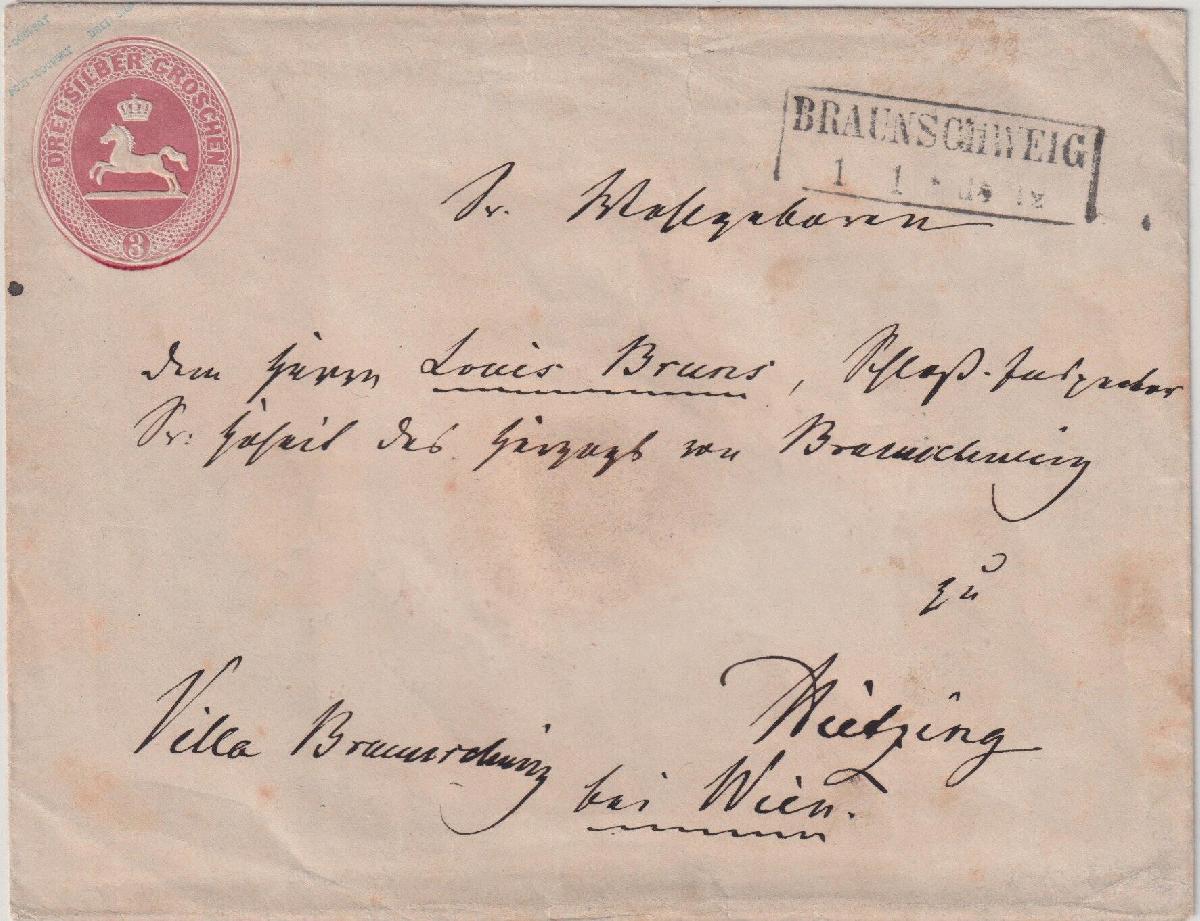 POST-COUVERT DREI SILB
DREI SILBER GROSCHEN
3
BRAUNSCHWEIG
1 1
Sr. Wohlgeboren
dem Herrn Louis Bruns, Schloß-Inspector
Sr: Hoheit des Herzogs von Braunschweig
zu
Hietzing
Villa Braunschweig bei Wien.